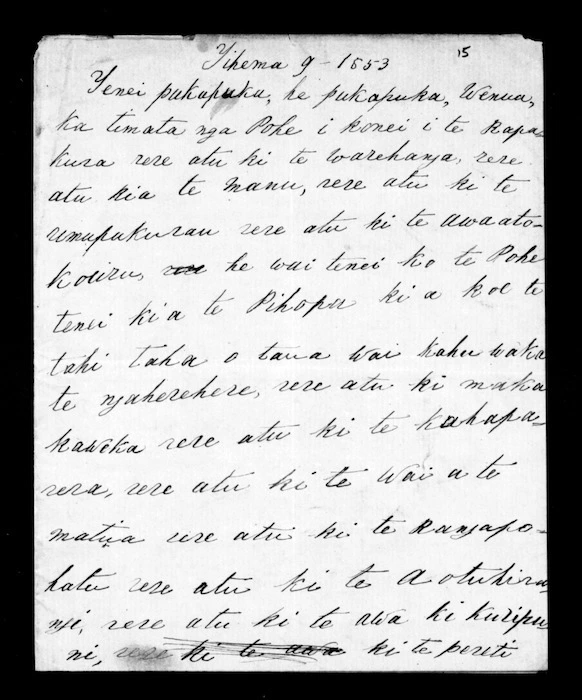 Tihema 9 - 1853
15
Tenei pukapuka, he pukapuka, Wenua,
ka timata nga Pohe i konei i te Rapa-
kura rere atu ki te warehanga, rere
atu kia te manu, rere atu ki te
umupukurau rere atu ki te awaato-
kouru, he wai tenei ko te Pohe
tenei kia te Pihopa ki a koe te
tahi taha o taua wai kahu waka
te ngaherehere, rere atu ki maka
kaweka rere atu ki te kahapa-
rera, rere atu ki te wai a te
matua rere atu ki te Rangapo-
hatu rere atu ki te Aotuhira-
ngi, rere atu ki te awa ki kuripu
ni, rere ki te awa ki te periti